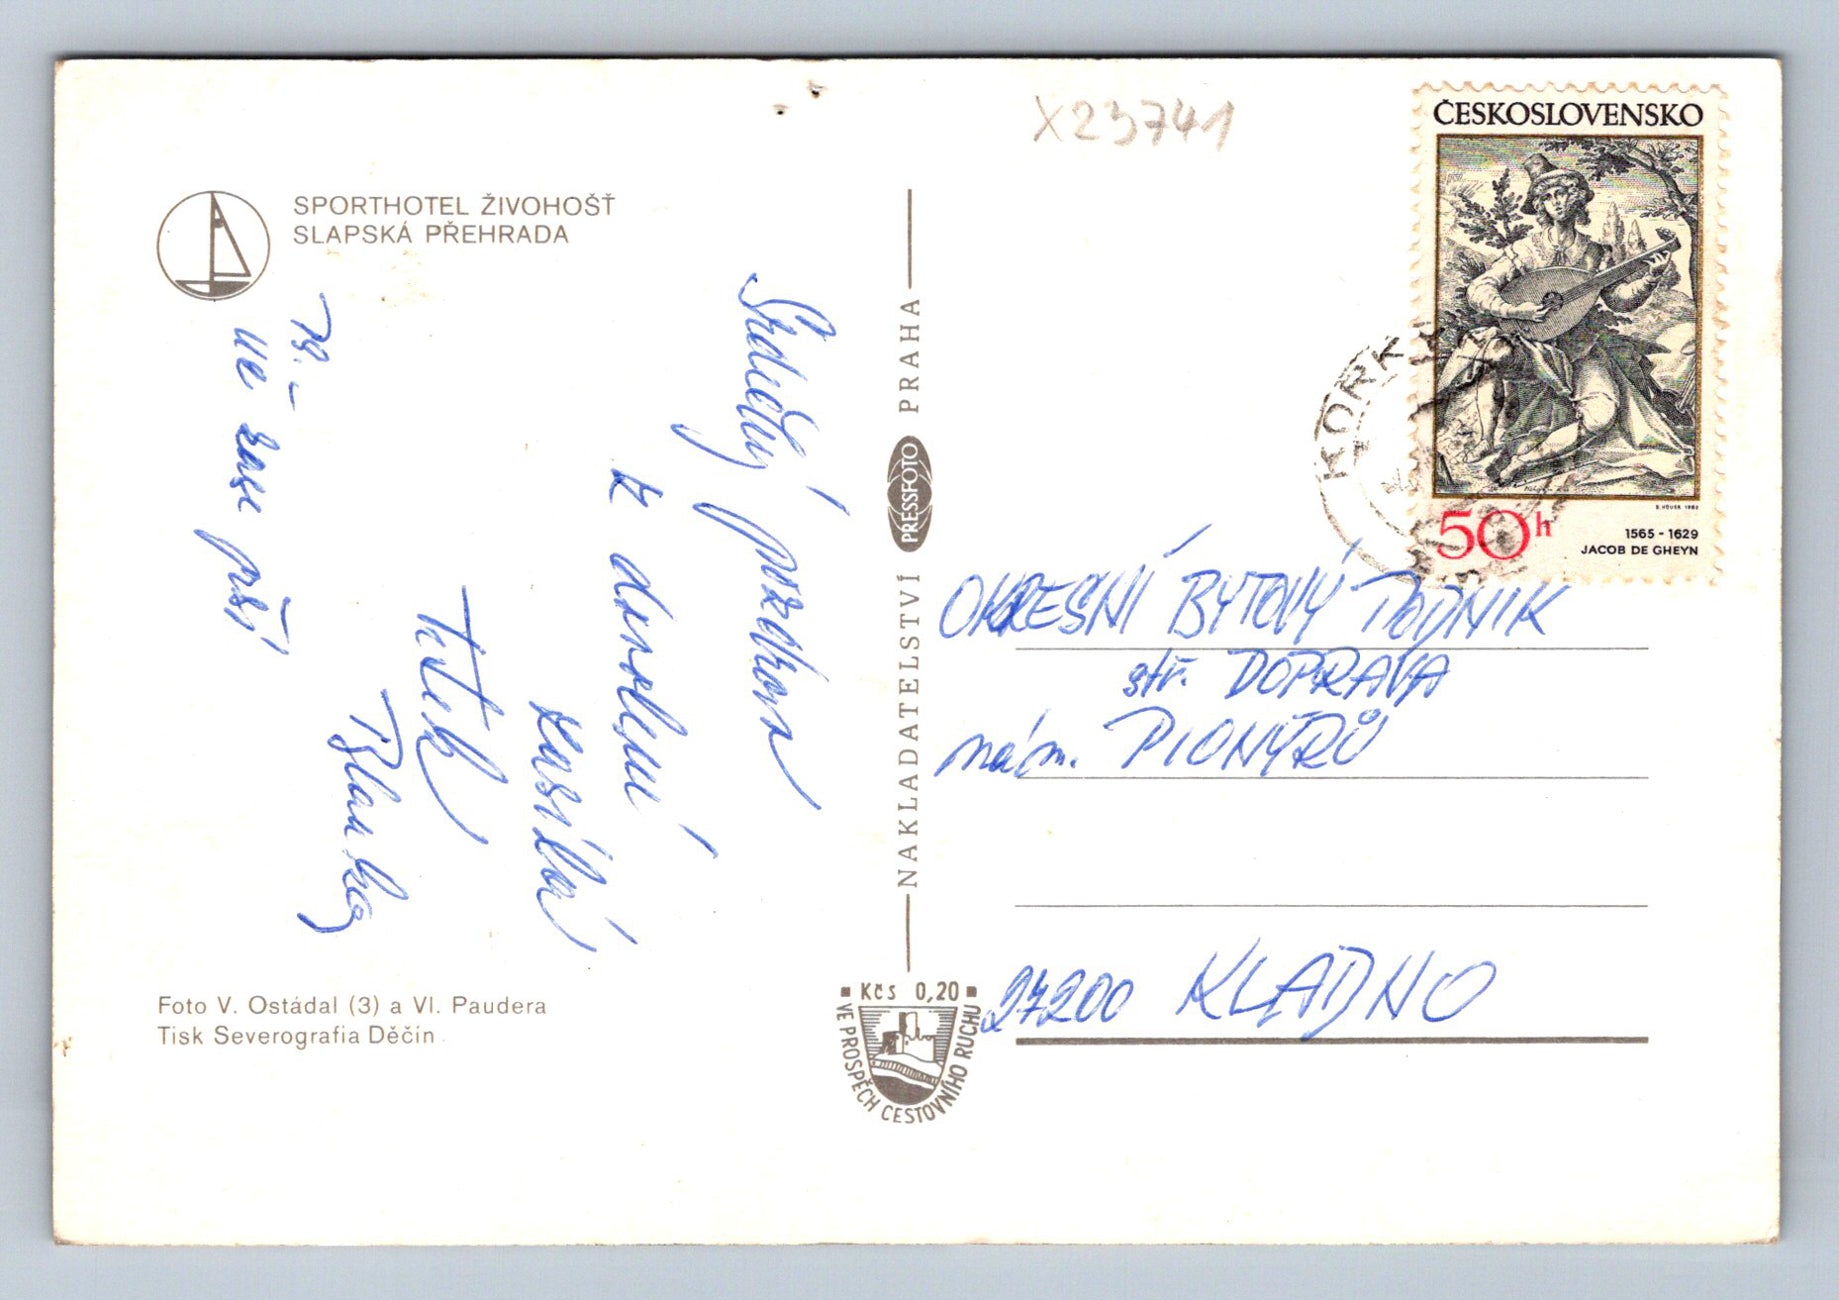 X23741
ČESKOSLOVENSKO
50h
1565 - 1629
JACOB DE GHEYN
KORK
SPORTHOTEL ŽIVOHOŠŤ
SLAPSKÁ PŘEHRADA
Srdečný pozdrav
z dovolené
Ps. -
už zase prší
Foto V. Ostádal (3) a Vl. Paudera
Tisk Severografia Děčín
NAKLADATELSTVÍ PRESSFOTO PRAHA
Kčs 0,20
VE PROSPĚCH CESTOVNÍHO RUCHU
OKRESNÍ BYTOVÝ PODNIK
stř. DOPRAVA
nám. PIONÝRŮ
27200 KLADNO